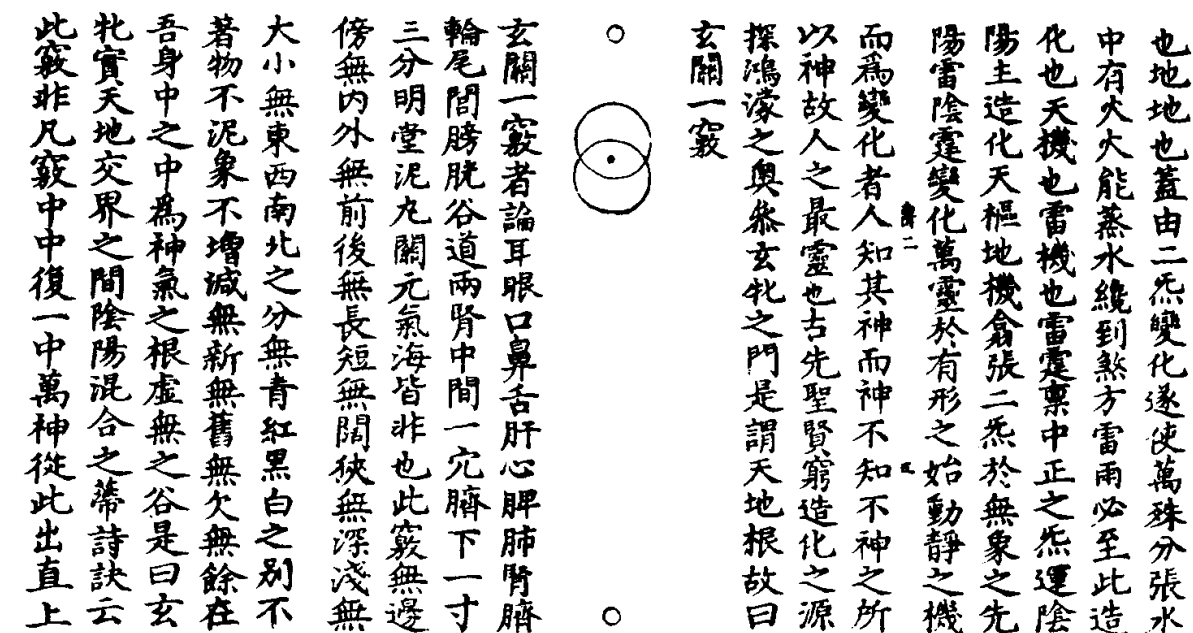 也地地也蓋由二炁變化遂使萬殊分張水
中有火火能蒸水纔到煞方雷雨必至此造
化也天機也雷機也雷霆稟中正之炁運陰
陽主造化天樞地機翕張二炁於無象之先
陽雷陰霆變化萬靈於有形之始動靜之機
而爲變化者人知其神而神不知不神之所
以神故人之最靈也古先聖賢窮造化之源
探鴻濛之奧叅玄牝之門是謂天地根故曰
玄關一竅
玄關一竅者論耳眼口鼻舌肝心脾肺腎臍
輪尾閭膀胱谷道兩腎中間一穴臍下一寸
三分明堂泥丸關元氣海皆非也此竅無邊
傍無内外無前後無長短無闊狹無深淺無
大小無東西南北之分無青紅黑白之別不
著物不泥象不增減無新無舊無欠無餘在
吾身中之中爲神氣之根虛無之谷是曰玄
牝實天地交界之間陰陽混合之蒂詩訣云
此竅非凡竅中中復一中萬神從此出直上